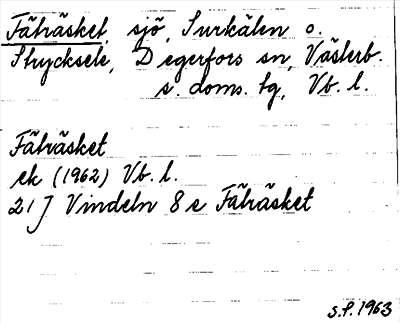 Fäbräsket, sjö, Surkälen o.
Strycksele, Degerfors sn, Västerb.
s. doms. tg, Vb. l.
Fäbräsket
ek (1962) Vb. l.
21 J Vindeln 8 e Fäbräsket
S.P. 1963